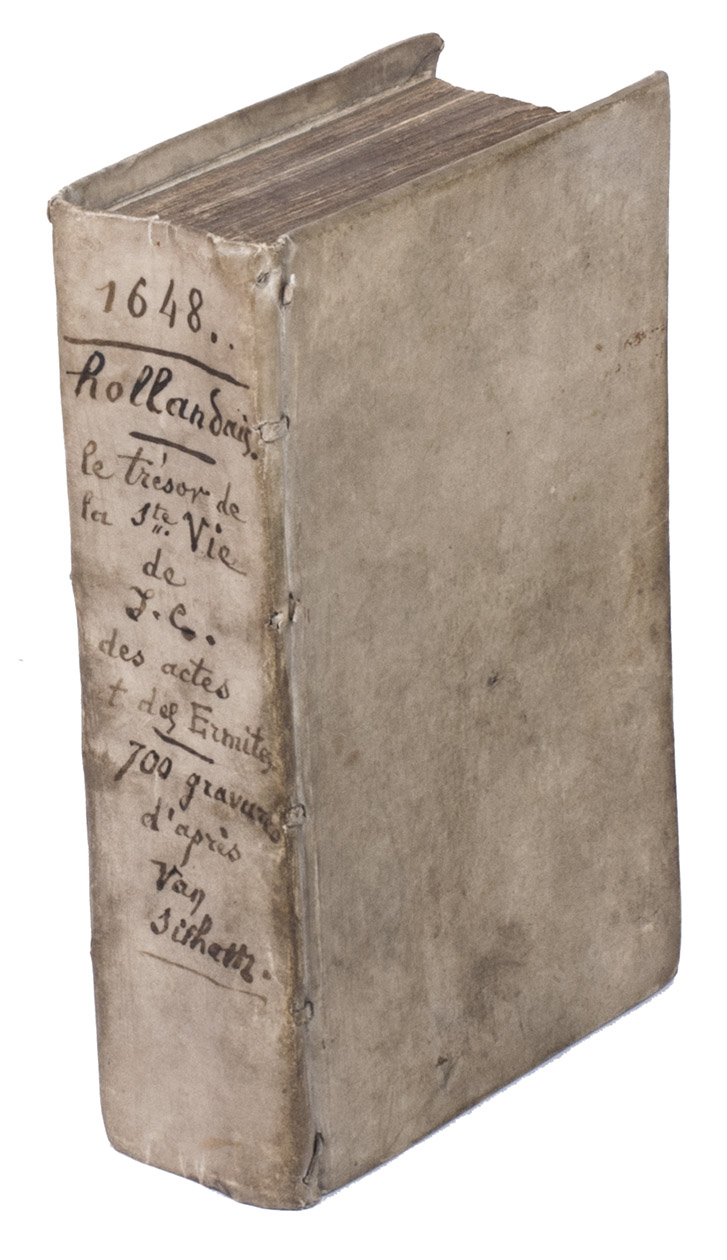 1648..
hollandais.
le trésor de
la Ste Vie
de
J. C.
des actes
t des Ermites
700 gravures
d'après
Van